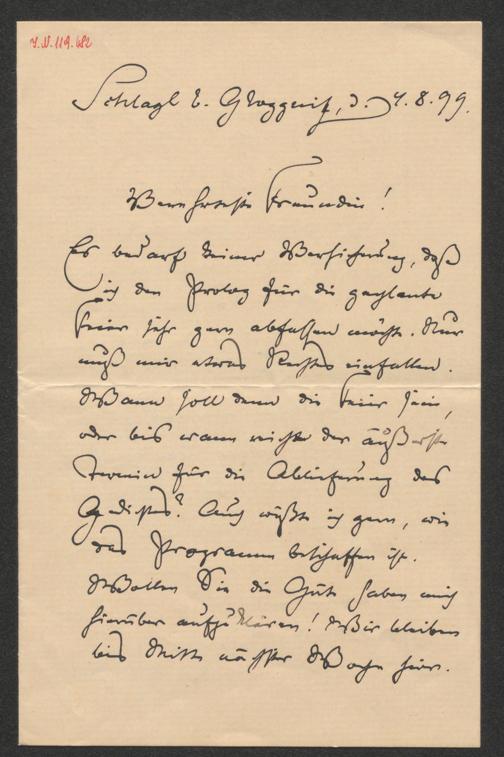 J.N. 119.682
Schlagl b. Gloggnitz, d. 4.8.99.
Verehrteste Freundin!
Es bedarf keiner Versicherung, daß
ich den Prolog für die geplante
Feier sehr gern abfassen möchte. Nur
muß mir etwas Rechtes einfallen.
Wann soll denn die Feier sein,
oder bis wann wäre der äußerste
Termin für die Ablieferung des
Gedichtes? Auch wüßte ich gern, wie
das Programm beschaffen ist.
Wollen Sie die Güte haben mich
hierüber aufzuklären! Wir bleiben
bis Mitte nächster Woche hier.